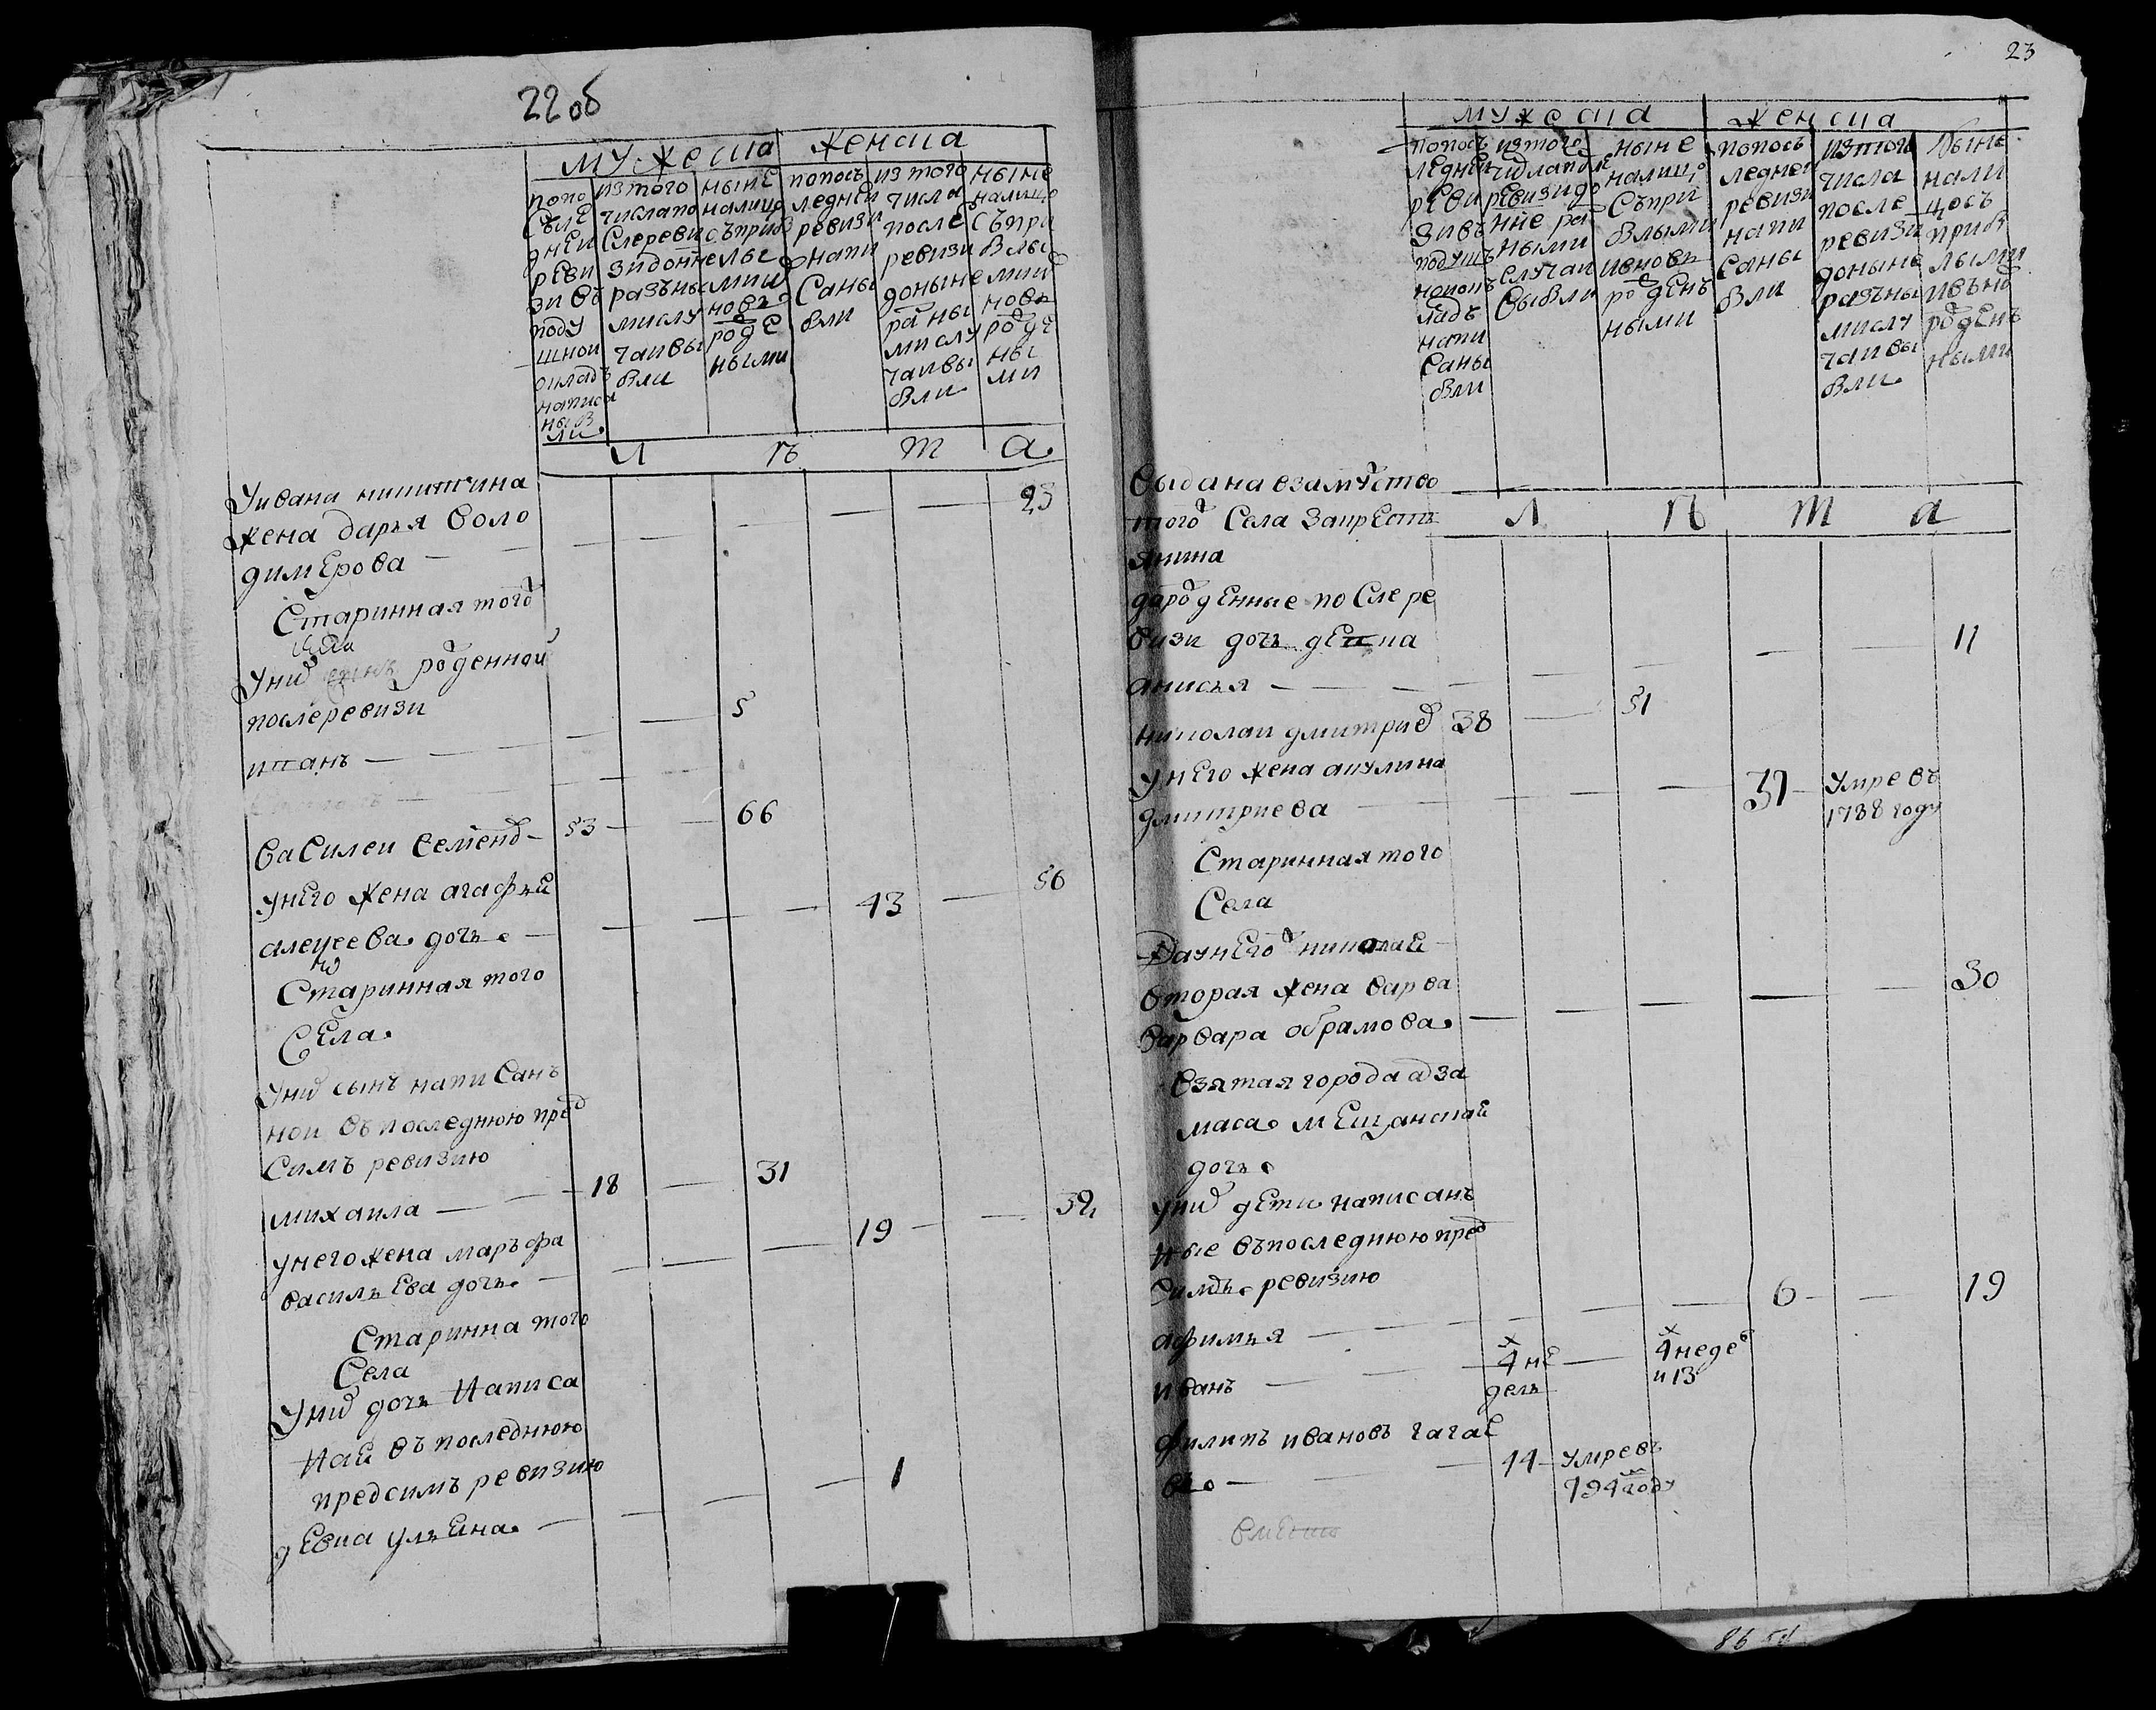 22 об
мужеска женска
попо
съле
днеи
реви
зи въ
поду
шнои
окладъ
написа
ны б
ли
изтого
числа по
слереви
зидонне
разъны
мислу
чаи вы
бли
ныне
налицо
съприб
лы
ми и
новъ
роде
ными
попось
ледней
ревизи
напи
саны
бли
из того
числа
после
ревизи
доныне
разны
мислу
чаивы
бли
ныне
налице
съпри
блы
ми и
новъ
роде
ны
ми
л ѣ т а
Уивана никитина
жена дарья воло
димерова
23
Старинная того
села
Уних сынъ роденнои
послеревизи
5
василеи семенов
53 66
унего жена агафьи
алексеева дочь
43 56
Старинная того
Села
Уних сынъ написанъ
нои въпоследнюю пред
симъ ревизию
михаила
18 31
унего жена маръфа
васильева дочь
19 32
Старинна того
Села
Уних дочь Написа
най въ последнюю
предсимъ ревизию
девка ульена
1
23
мужеска женска
попось
ледней
реви
зивъ
подуш
номок
ладъ
напи
саны
бли
изтого
числапосле
ревизидо
нне раз
ными
случаи
выбли
ныне
налицо
съпри
блыми
ивновь
роденъ
ными
попось
ледней
ревизи
напи
саны
бли
изтого
числа
после
ревизи
доныне
разъны
мислу
чаивы
бли
ныне
нали
цось
приб
лыми
ивъно
роденъ
ными
выдана взамужство
того Села закрестъ
янина
л ѣ т а
дароденные послере
визи дочь девка
анисья
11
николаи дмитрив
38 51
унего жена акулина
дмитриева
37 Умре въ
1788 году
Старинная того
Села
Даунего николай
вторая жена варва
варвара обрамова
30
взятая города арза
маса мещанской
дочь
уних дети написанъ
ные въпоследнюю пред
симъ ревизию
афимья
6 19
иванъ
4 не
дель
4 неде
и 13
филипъ ивановъ гагае
въ
44 умре въ
794м году
86 54